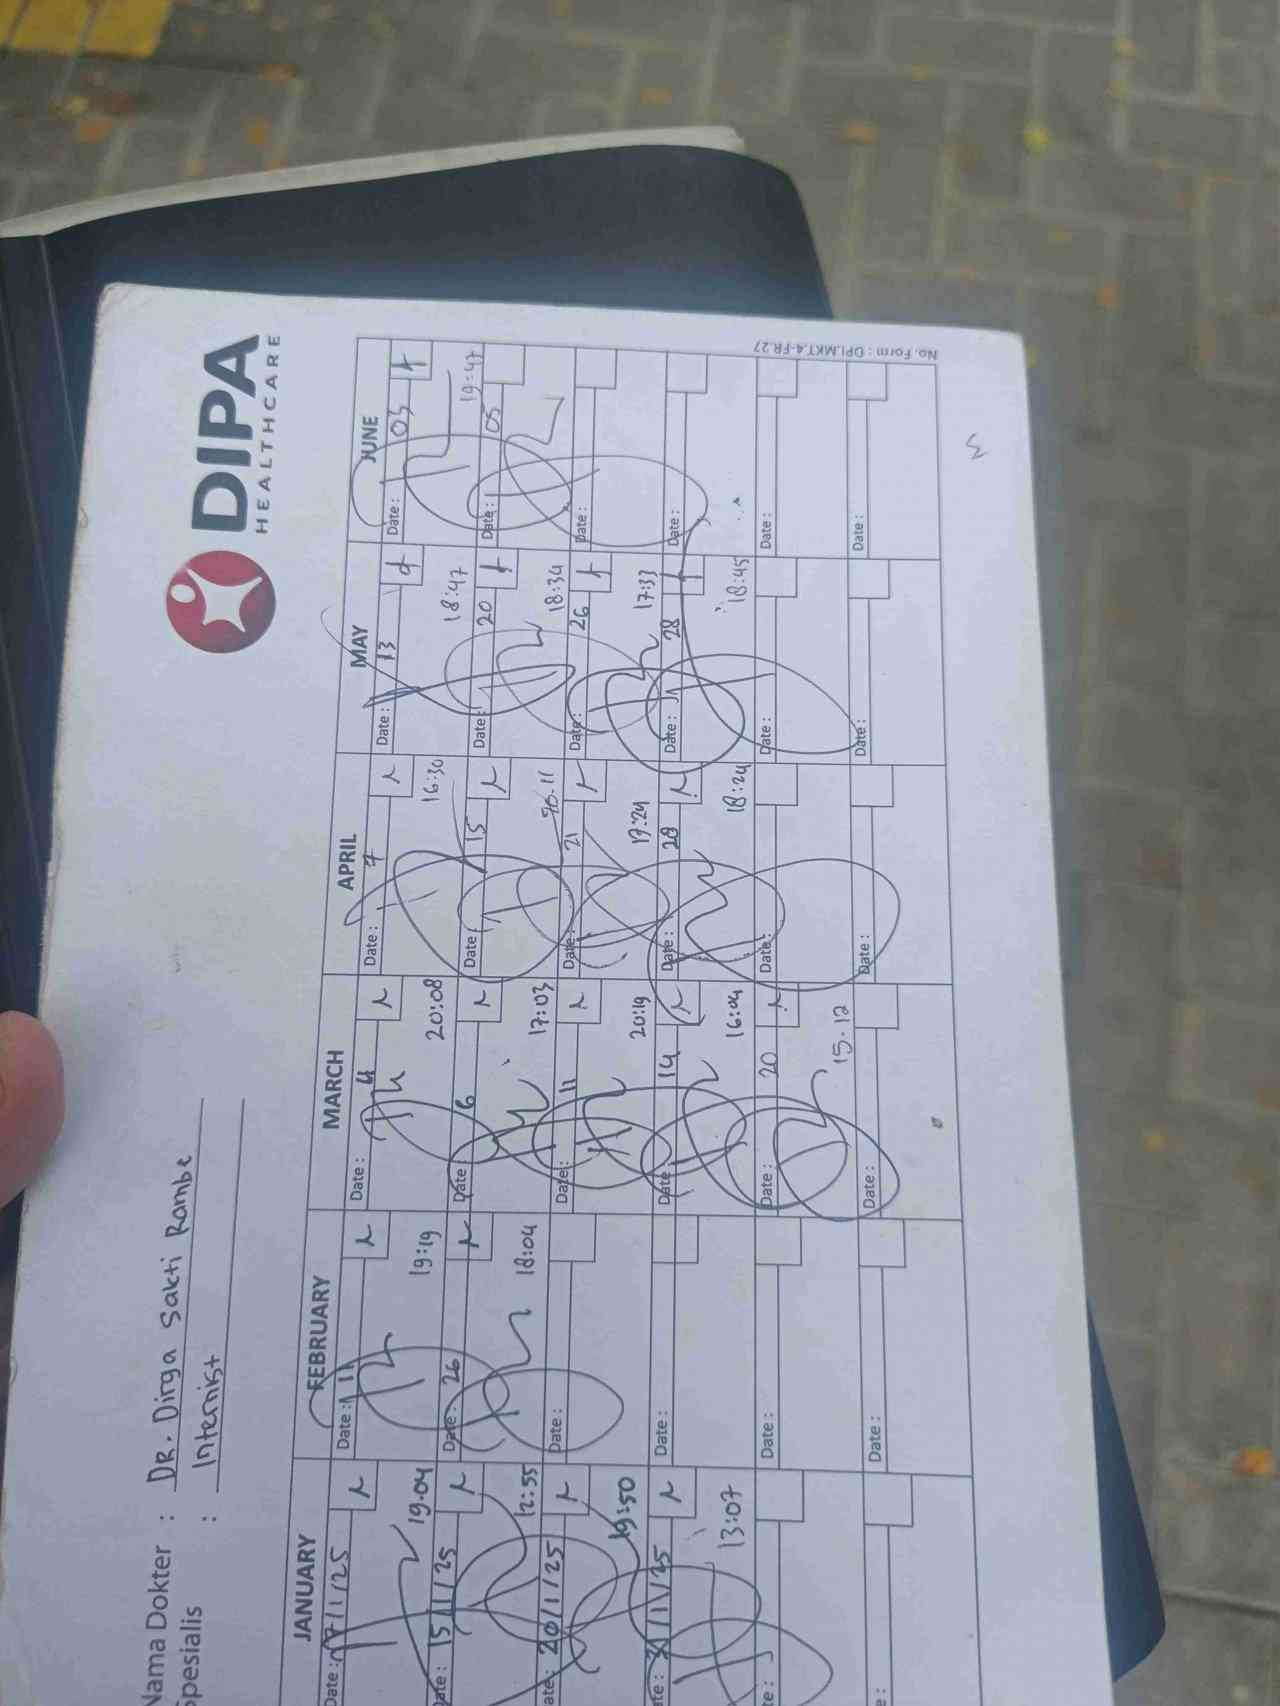 DIPA
HEALTHCARE
Nama Dokter : DR. Dirga Sakti Rambe
Spesialis : Internist
JANUARY FEBRUARY MARCH APRIL MAY JUNE
Date: 7/1/25 Date: 11 Date: 4 Date: 7 Date: 13 Date: 03
19.04 19:19 20:08 16:30 18:47 19:47
Date: 15/1/25 Date: 26 Date: 6 Date: 15 Date: 20 Date: 05
12:55 18:04 17:03 18:34
Date: 20/1/25 Date: Date: 11 Date: 21 Date: 26 Date:
19:50 20:19 17:24 17:33
Date: 31/1/25 Date: Date: 14 Date: 28 Date: 28 Date:
13:07 16:04 18:24 18:45
Date: Date: Date: 20 Date: Date: Date:
15.12
Date: Date: Date: Date: Date: Date:
No. Form : DPI.MKT.4-FR.27